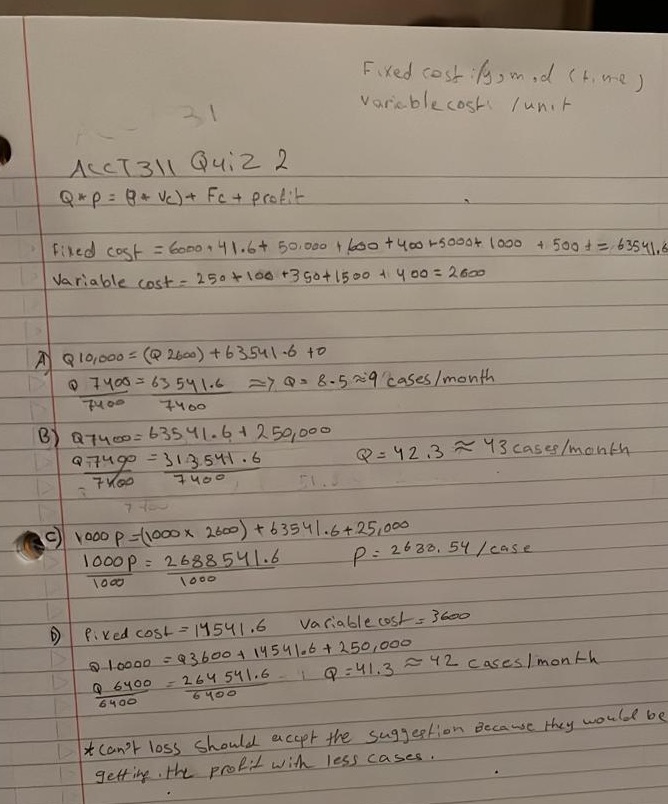 Fixed cost: /y, m, d (time)
Variable cost: /unit
31
ACCT311 Quiz 2
Q * p = (Q * Vc) + Fc + profit
fixed cost = 6000 + 41.6 + 50,000 + 600 + 400 + 5000 + 1000 + 500 + = 63541.6
Variable cost = 250 + 100 + 350 + 1500 + 400 = 2600
A) Q 10,000 = (Q 2600) + 63541.6 + 0
Q 7400 = 63541.6 => Q = 8.5 ≈ 9 cases/month
7400 7400
B) Q7400 = 63541.6 + 250,000
Q 7400 = 313541.6 Q = 42.3 ≈ 43 cases/month
7400 7400
C) 1000 p = (1000 x 2600) + 63541.6 + 25,000
1000 p = 2688541.6 p = 2688.54 /case
1000 1000
D) fixed cost = 14541.6 Variable cost = 3600
Q 10000 = Q3600 + 14541.6 + 250,000
Q 6400 = 264 541.6 Q = 41.3 ≈ 42 cases/month
6400 6400
* can't loss should accpt the suggestion because they would be
getting the profit with less cases.